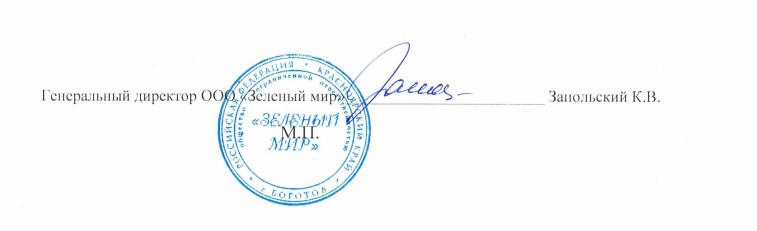 Генеральный директор ООО «Зеленый мир» Запольский К.В.
М.П.
РОССИЙСКАЯ ФЕДЕРАЦИЯ * КРАСНОЯРСКИЙ КРАЙ *
общество с ограниченной ответственностью
«ЗЕЛЕНЫЙ
МИР»
г. БОГОТОЛ